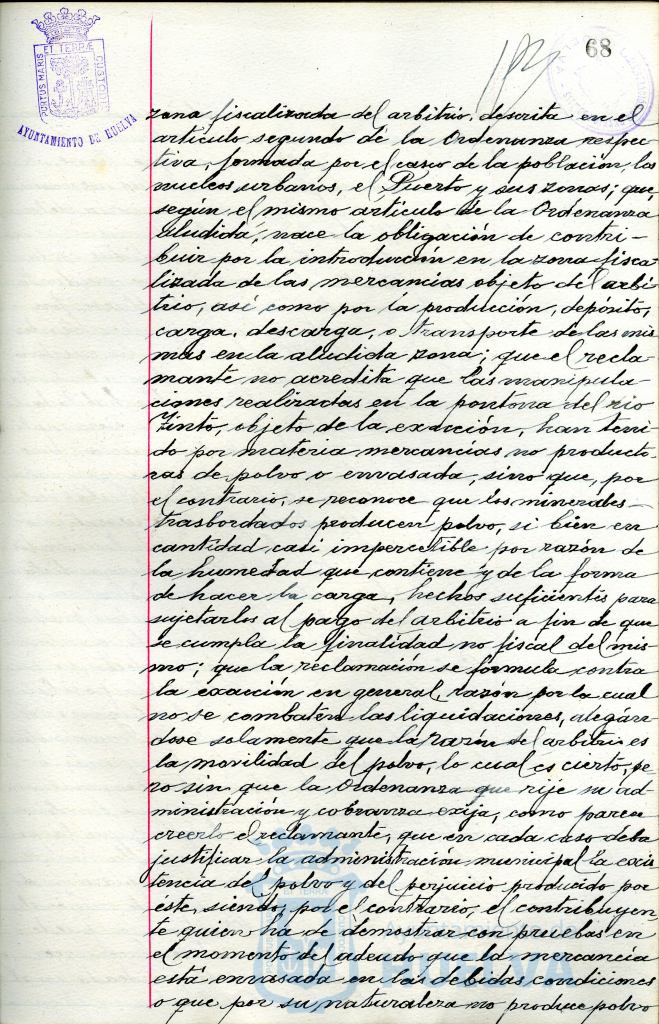 68
PORTUS MARIS ET TERRÆ CUSTODIA
AYUNTAMIENTO DE HUELVA
zona fiscalizada del arbitrio, descrita en el
artículo segundo de la Ordenanza respec-
tiva, formada por el casco de la población, los
nucleos urbanos, el Puerto y sus zonas; que,
según el mismo artículo de la Ordenanza
aludida, nace la obligación de contri-
buir por la introducción en la zona fisca-
lizada de las mercancias objeto del arbi-
trio, así como por la producción, depósito,
carga, descarga, o transporte de las mis
mas en la aludida zona; que el recla-
mante no acredita que las manipula-
ciones realizadas en la pontona del rio
Tinto, objeto de la exacción, han teni-
do por materia mercancias no producto-
ras de polvo o envasada, sino que, por
el contrario, se reconoce que los minerales
trasbordados producen polvo, si bien en
cantidad casi imperceptible por razón de
la humedad que contiene y de la forma
de hacer la carga, hechos suficientes para
sujetarlos al pago del arbitrio a fin de que
se cumpla la finalidad no fiscal del mis
mo; que la reclamación se formula contra
la exacción en general, razón por la cual
no se combaten las liquidaciones, alegán-
dose solamente que la razón del arbitrio es
la movilidad del polvo, lo cual es cierto, pe-
ro sin que la Ordenanza que rije su ad-
ministración y cobranza exija, como parece
creerlo el reclamante, que en cada caso deba
justificar la administración municipal la exis
tencia del polvo y del perjuicio producido por
éste, siendo, por el contrario, el contribuyen-
te quien ha de demostrar con pruebas en
el momento del adeudo que la mercancía
está envasada en las debidas condiciones
o que por su naturaleza no produce polvo
HUELVA